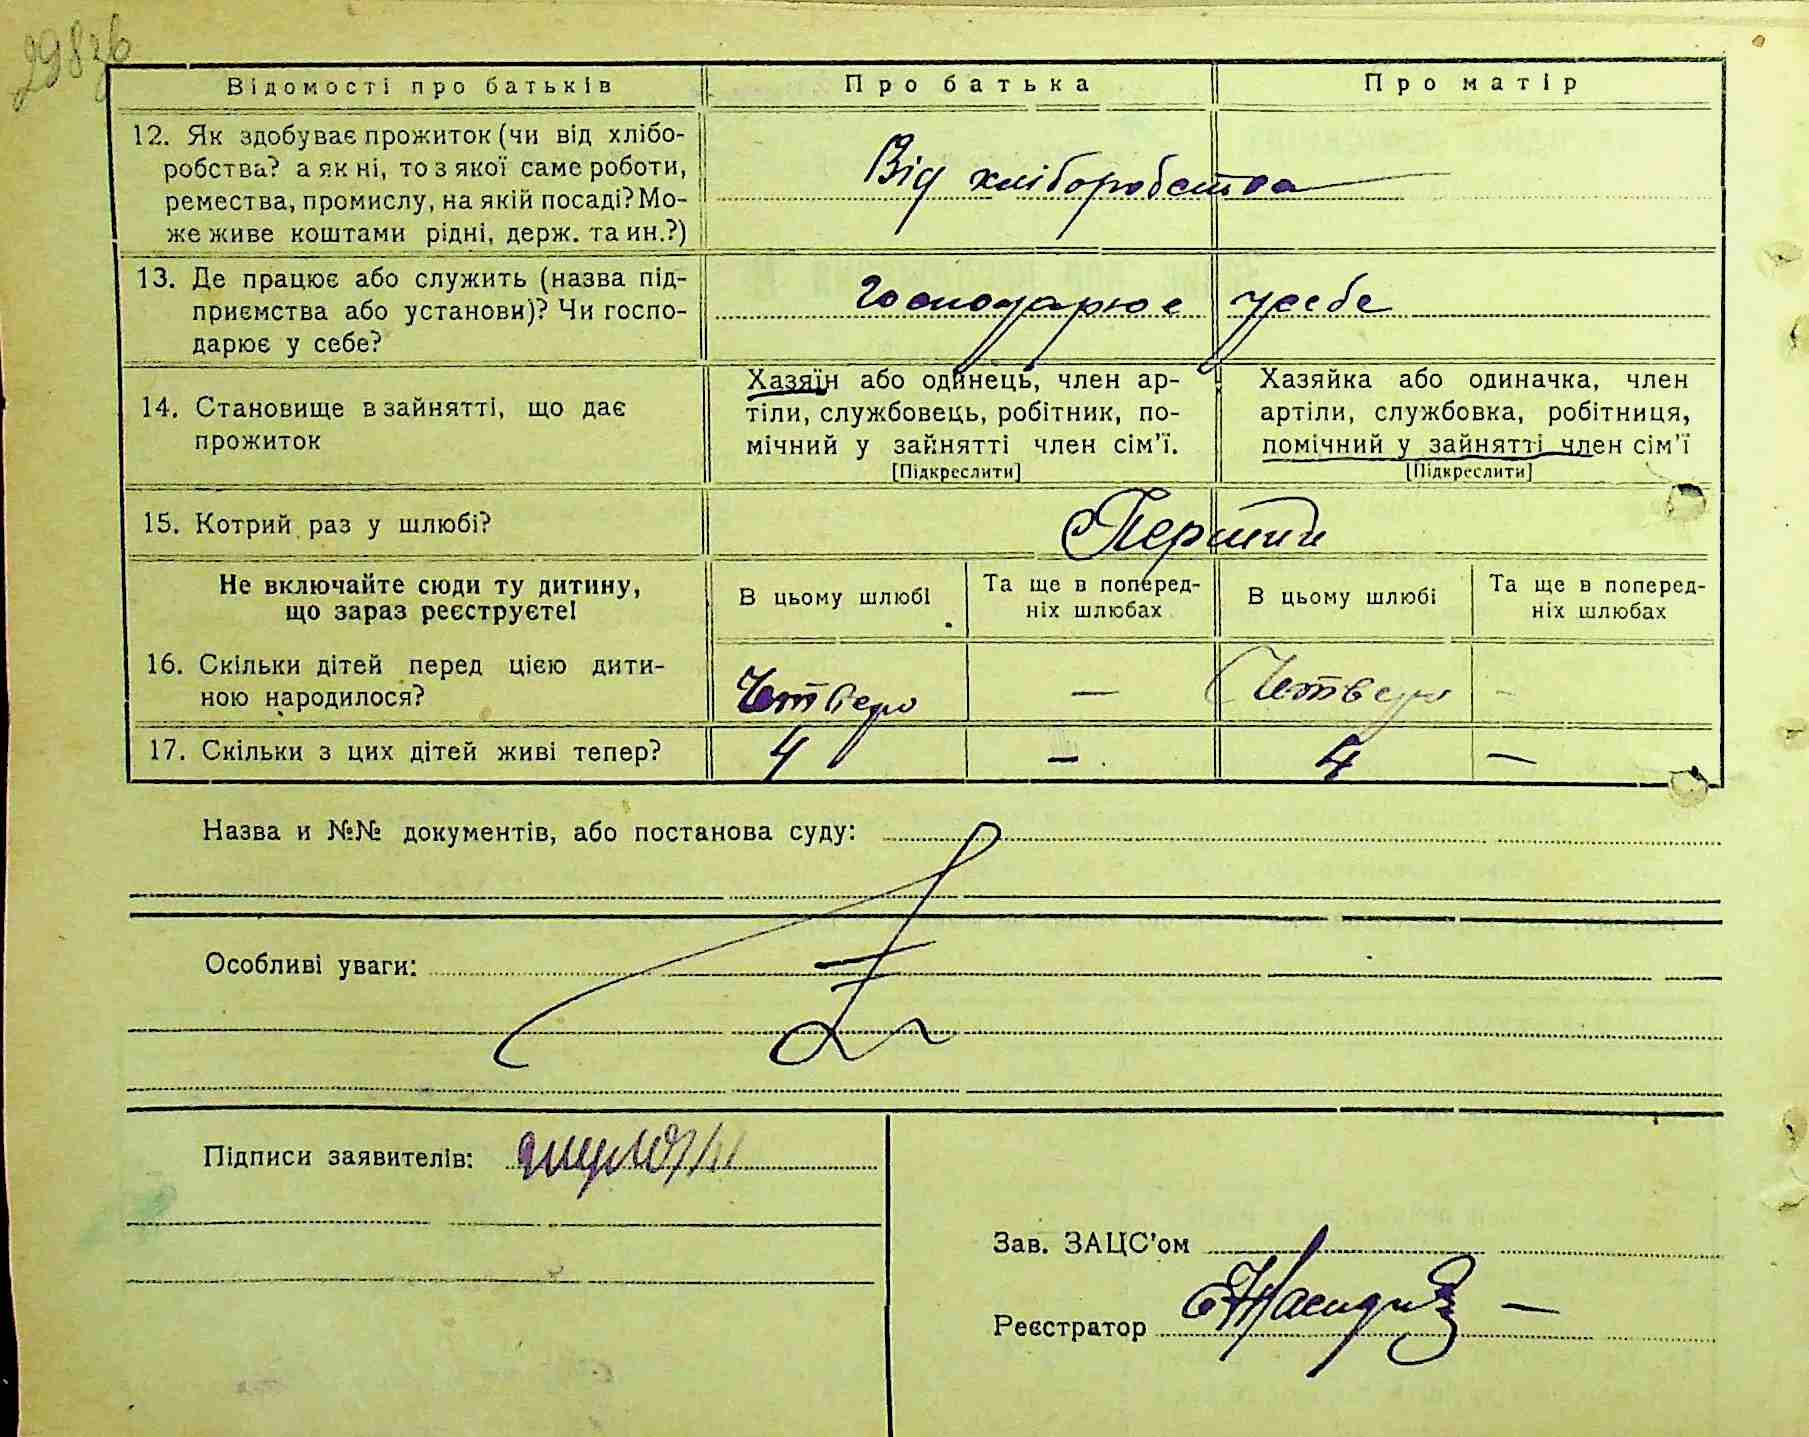 298зв
Відомості про батьків Про батька Про матір
12. Як здобуває прожиток (чи від хлібо-
робства? а як ні, то з якої саме роботи,
ремества, промислу, на якій посаді? Мо-
же живе коштами рідні, держ. та ин.?)
Від хліборобства
13. Де працює або служить (назва під-
приємства або установи)? Чи госпо-
дарює у себе?
Господарює у себе
14. Становище в зайнятті, що дає
прожиток
Хазяїн або одинець, член ар-
тіли, службовець, робітник, по-
мічний у зайнятті член сім'ї.
[Підкреслити]
Хазяйка або одиначка, член
артіли, службовка, робітниця,
помічний у зайнятті член сім'ї
[Підкреслити]
15. Котрий раз у шлюбі?
Перший
Не включайте сюди ту дитину,
що зараз реєструєте!
В цьому шлюбі
Та ще в поперед-
ніх шлюбах
В цьому шлюбі
Та ще в поперед-
ніх шлюбах
16. Скільки дітей перед цією дити-
ною народилося?
Четверо — Четверо -
17. Скільки з цих дітей живі тепер?
4 — 4 —
Назва и №№ документів, або постанова суду:
Особливі уваги:
Підписи заявителів:
Зав. ЗАЦС'ом
Реєстратор